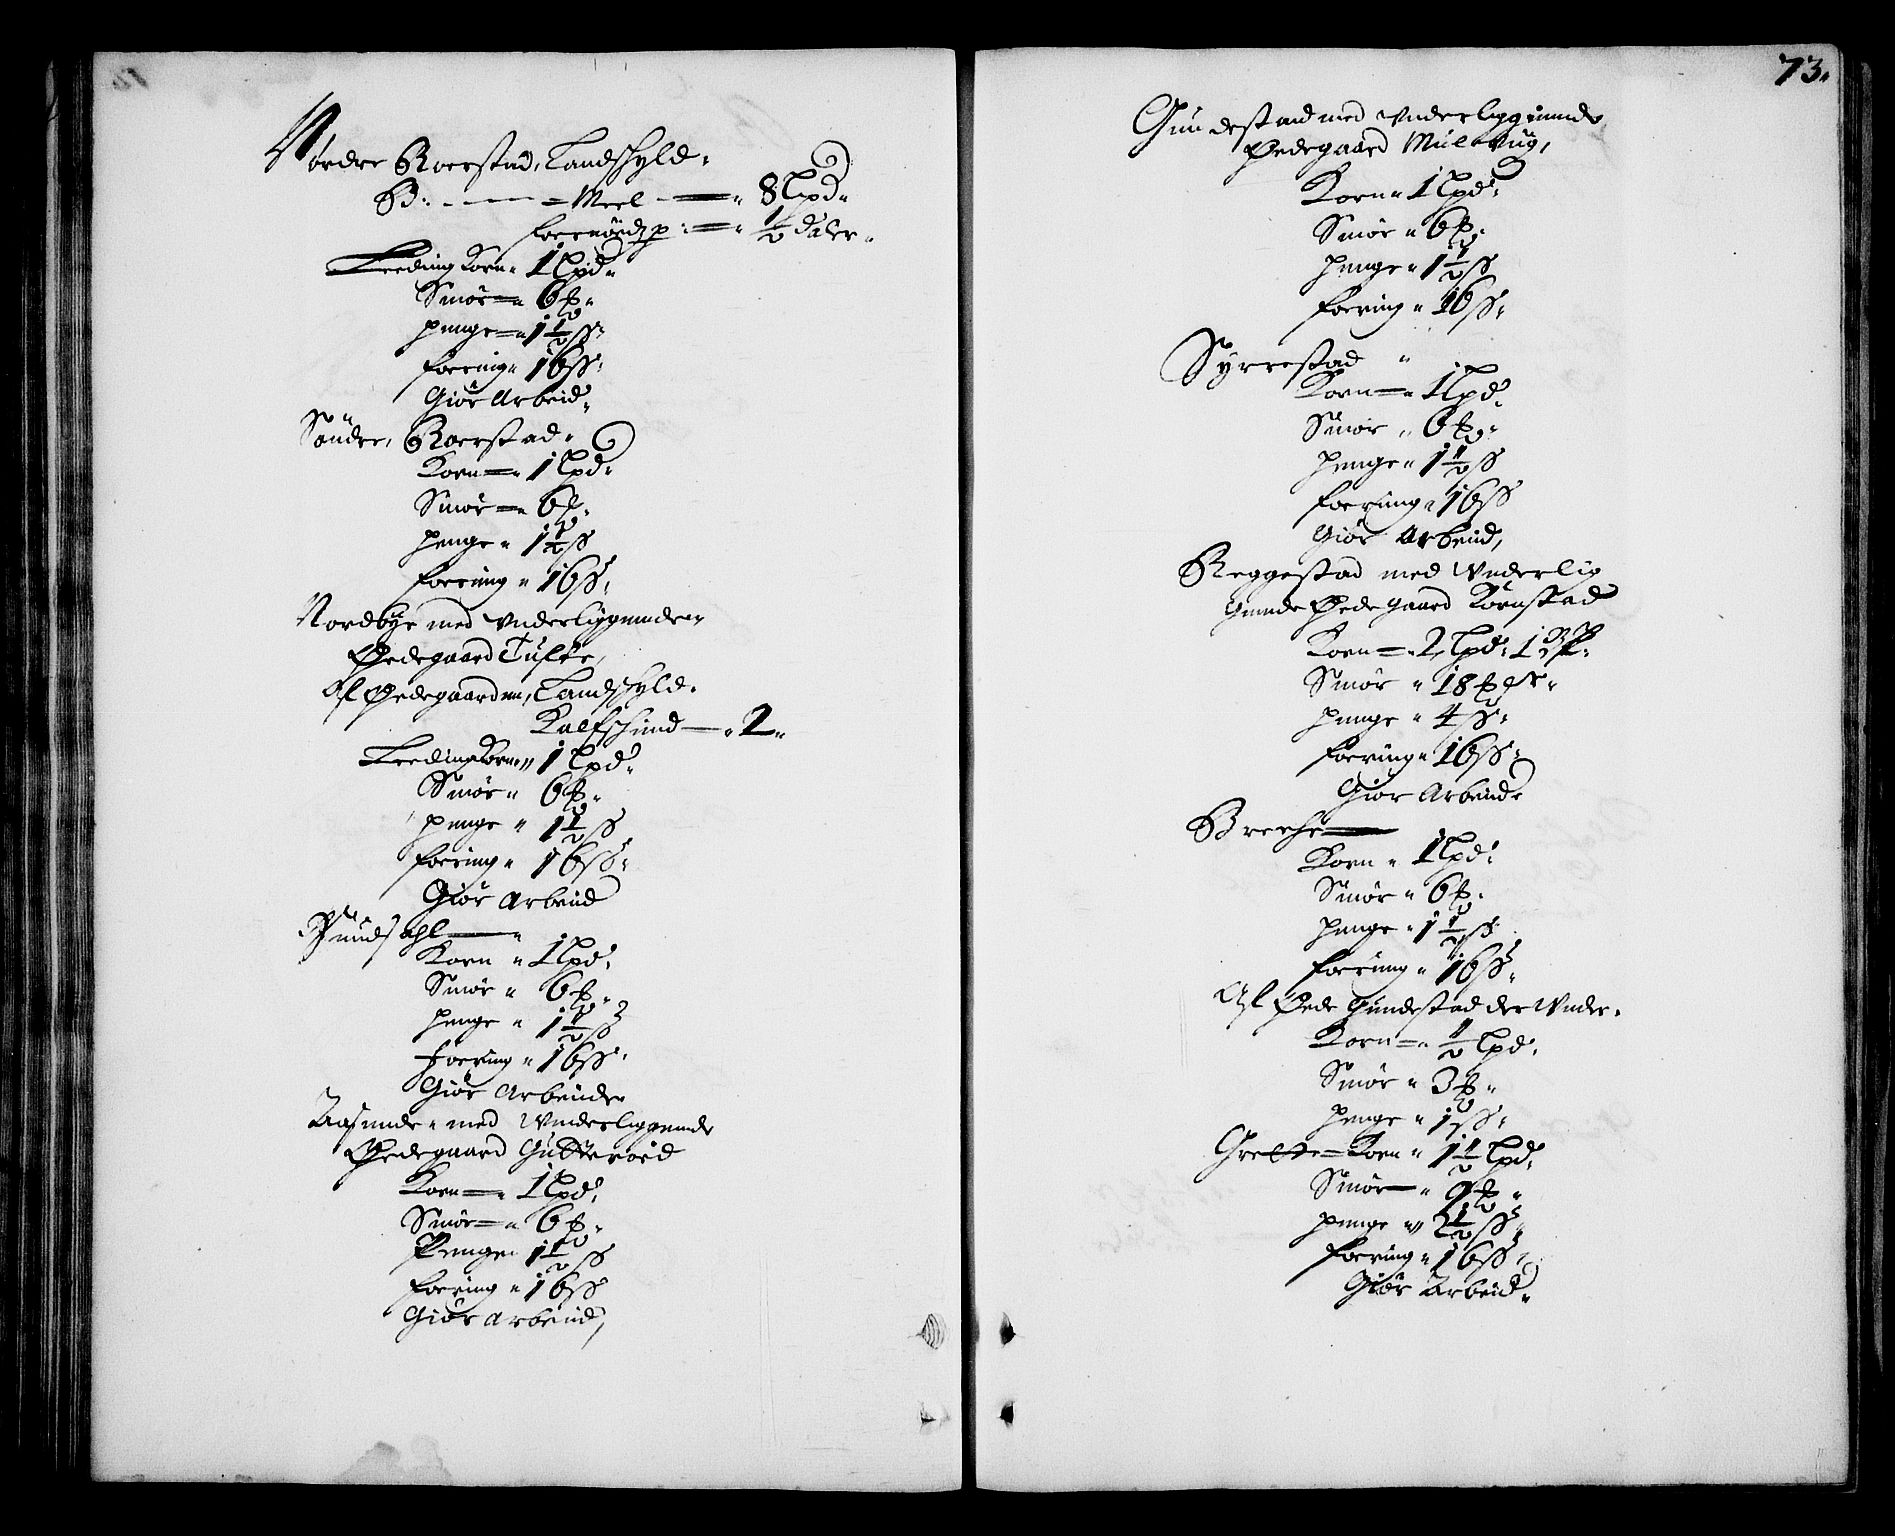 Nordre Roerstad, Landschyld.
B: - - - Meel - 8 Lpd
foernödz p: ½ daler
Leeding Korn 1 Lpd
Smör 6 ℔
penge 1½ ss
foering 16 ss
Giör Arbeid
Söndre, Roerstad
Korn 1 Lpd
Smör 6 ℔
penge 1½ ss
foering 16 ss
Nordbye med Vnderliggende
Ødegaard
Af Ødegaarden, Landschyld
Kalfschind 2
Leeding Korn 1 Lpd
Smör 6 ℔
penge 1½ ss
foering 16 ss
Giör Arbeid
Korn 1 Lpd
Smör 6 ℔
penge 1½ ss
Foering 16 ss
Giör Arbeide
Aasende med Vnderliggende
Ødegaard Gutteröed
Korn 1 Lpd
Smör 6 ℔
Penge 1½ ss
foering 16 ss
Giör Arbeid,
73.
Gundestad med Vnderliggende
Ødegaard Mulevüg,
Korn 1 Lpd
Smör 6 ℔
penge 1½ ss
foering 16 ss
Syrrestad
Korn 1 Lpd
Smör 6 ℔
penge 1½ ss
foering 16 ss
Giör Arbeid,
Reggestad med Vnderlig
gende Ødegaard Kornstad
Korn 2 Lpd 1
Smör 18 ℔
penge 4 ss
foering 16 ss
Giör Arbeide
Breche
Korn 1 Lpd
Smör 6 ℔
penge 1½ ss
foering 16 ss
Af Øde Gundestad der Vnder
Korn ½ Lpd
Smör 3 ℔
penge 1 ss
Grette Korn 1½ Lpd
Smör 9 ℔
penge 2½ ss
foering 16 ss
Giör Arbeid